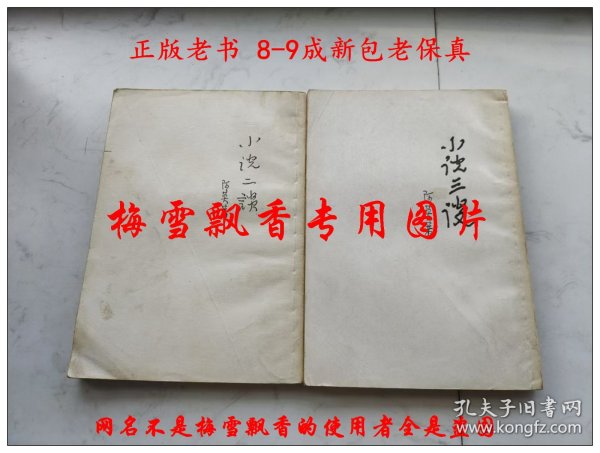 正版老书 8-9成新包老保真
小说二谈
阿英著
小说三谈
阿英著
梅雪飘香专用图片
网名不是梅雪飘香的使用者全是盗图
孔夫子旧书网
www.kongfz.com